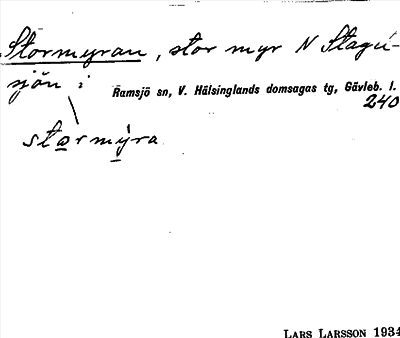 Stormyran, stor myr N Stagu-
sjön i Ramsjö sn, V. Hälsinglands domsagas tg, Gävleb. l.
240
starmyra
LARS LARSSON 1934